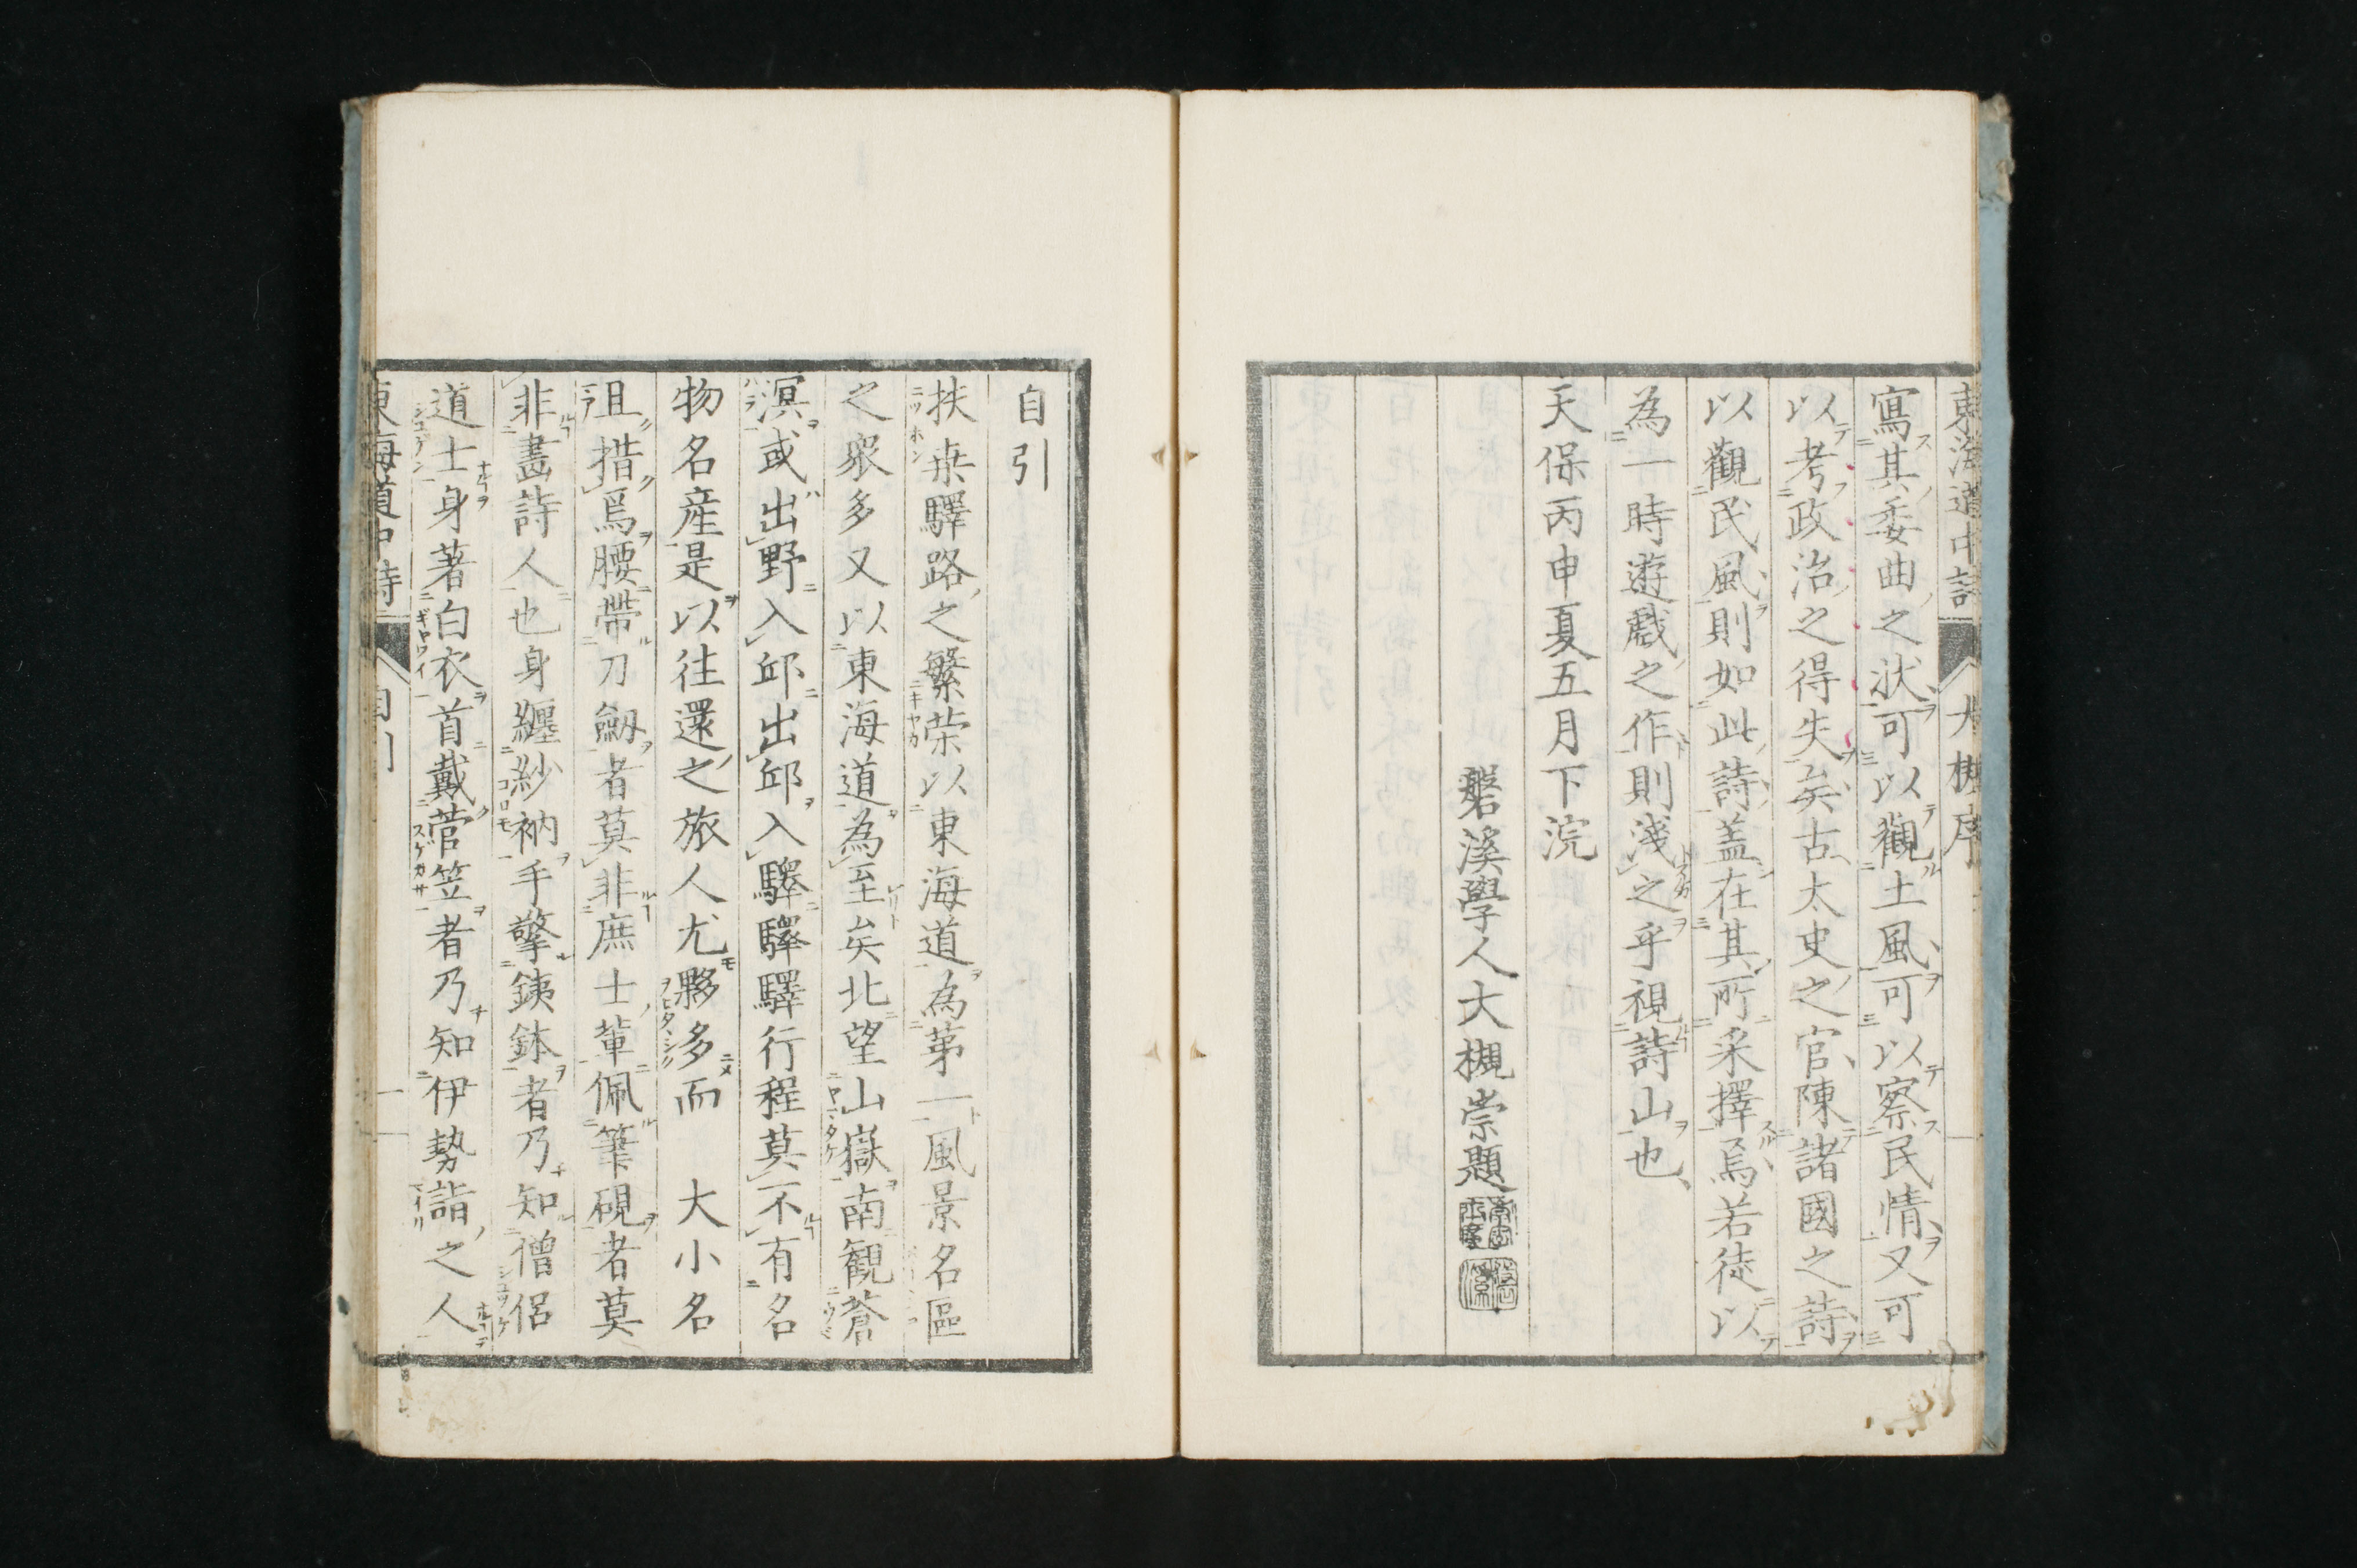 東海道中詩 大槻序
寫其委曲之状可以觀土風可以察民情又可
以考政治之得失矣古太史之官陳諸國之詩
以觀民風則如此詩盖在其所采擇焉若徒以
為一時遊戲之作則淺之乎視詩山也
天保丙申夏五月下浣
磐溪學人大槻崇題
自引
扶桒驛路之繁荣以東海道為苐一風景名區
之衆多又以東海道為至矣北望山嶽南観蒼
溟或出野入邱出邱入驛驛驛行程莫不有名
物名産是以往還之旅人尤夥多而 大小名
徂措焉腰帶刀劔者莫非庶士輩佩筆硯者莫
非畵詩人也身纒紗衲手擎銕鉢者乃知僧侶
道士身著白衣首戴菅笠者乃知伊勢詣之人
東海道中詩 自引 一